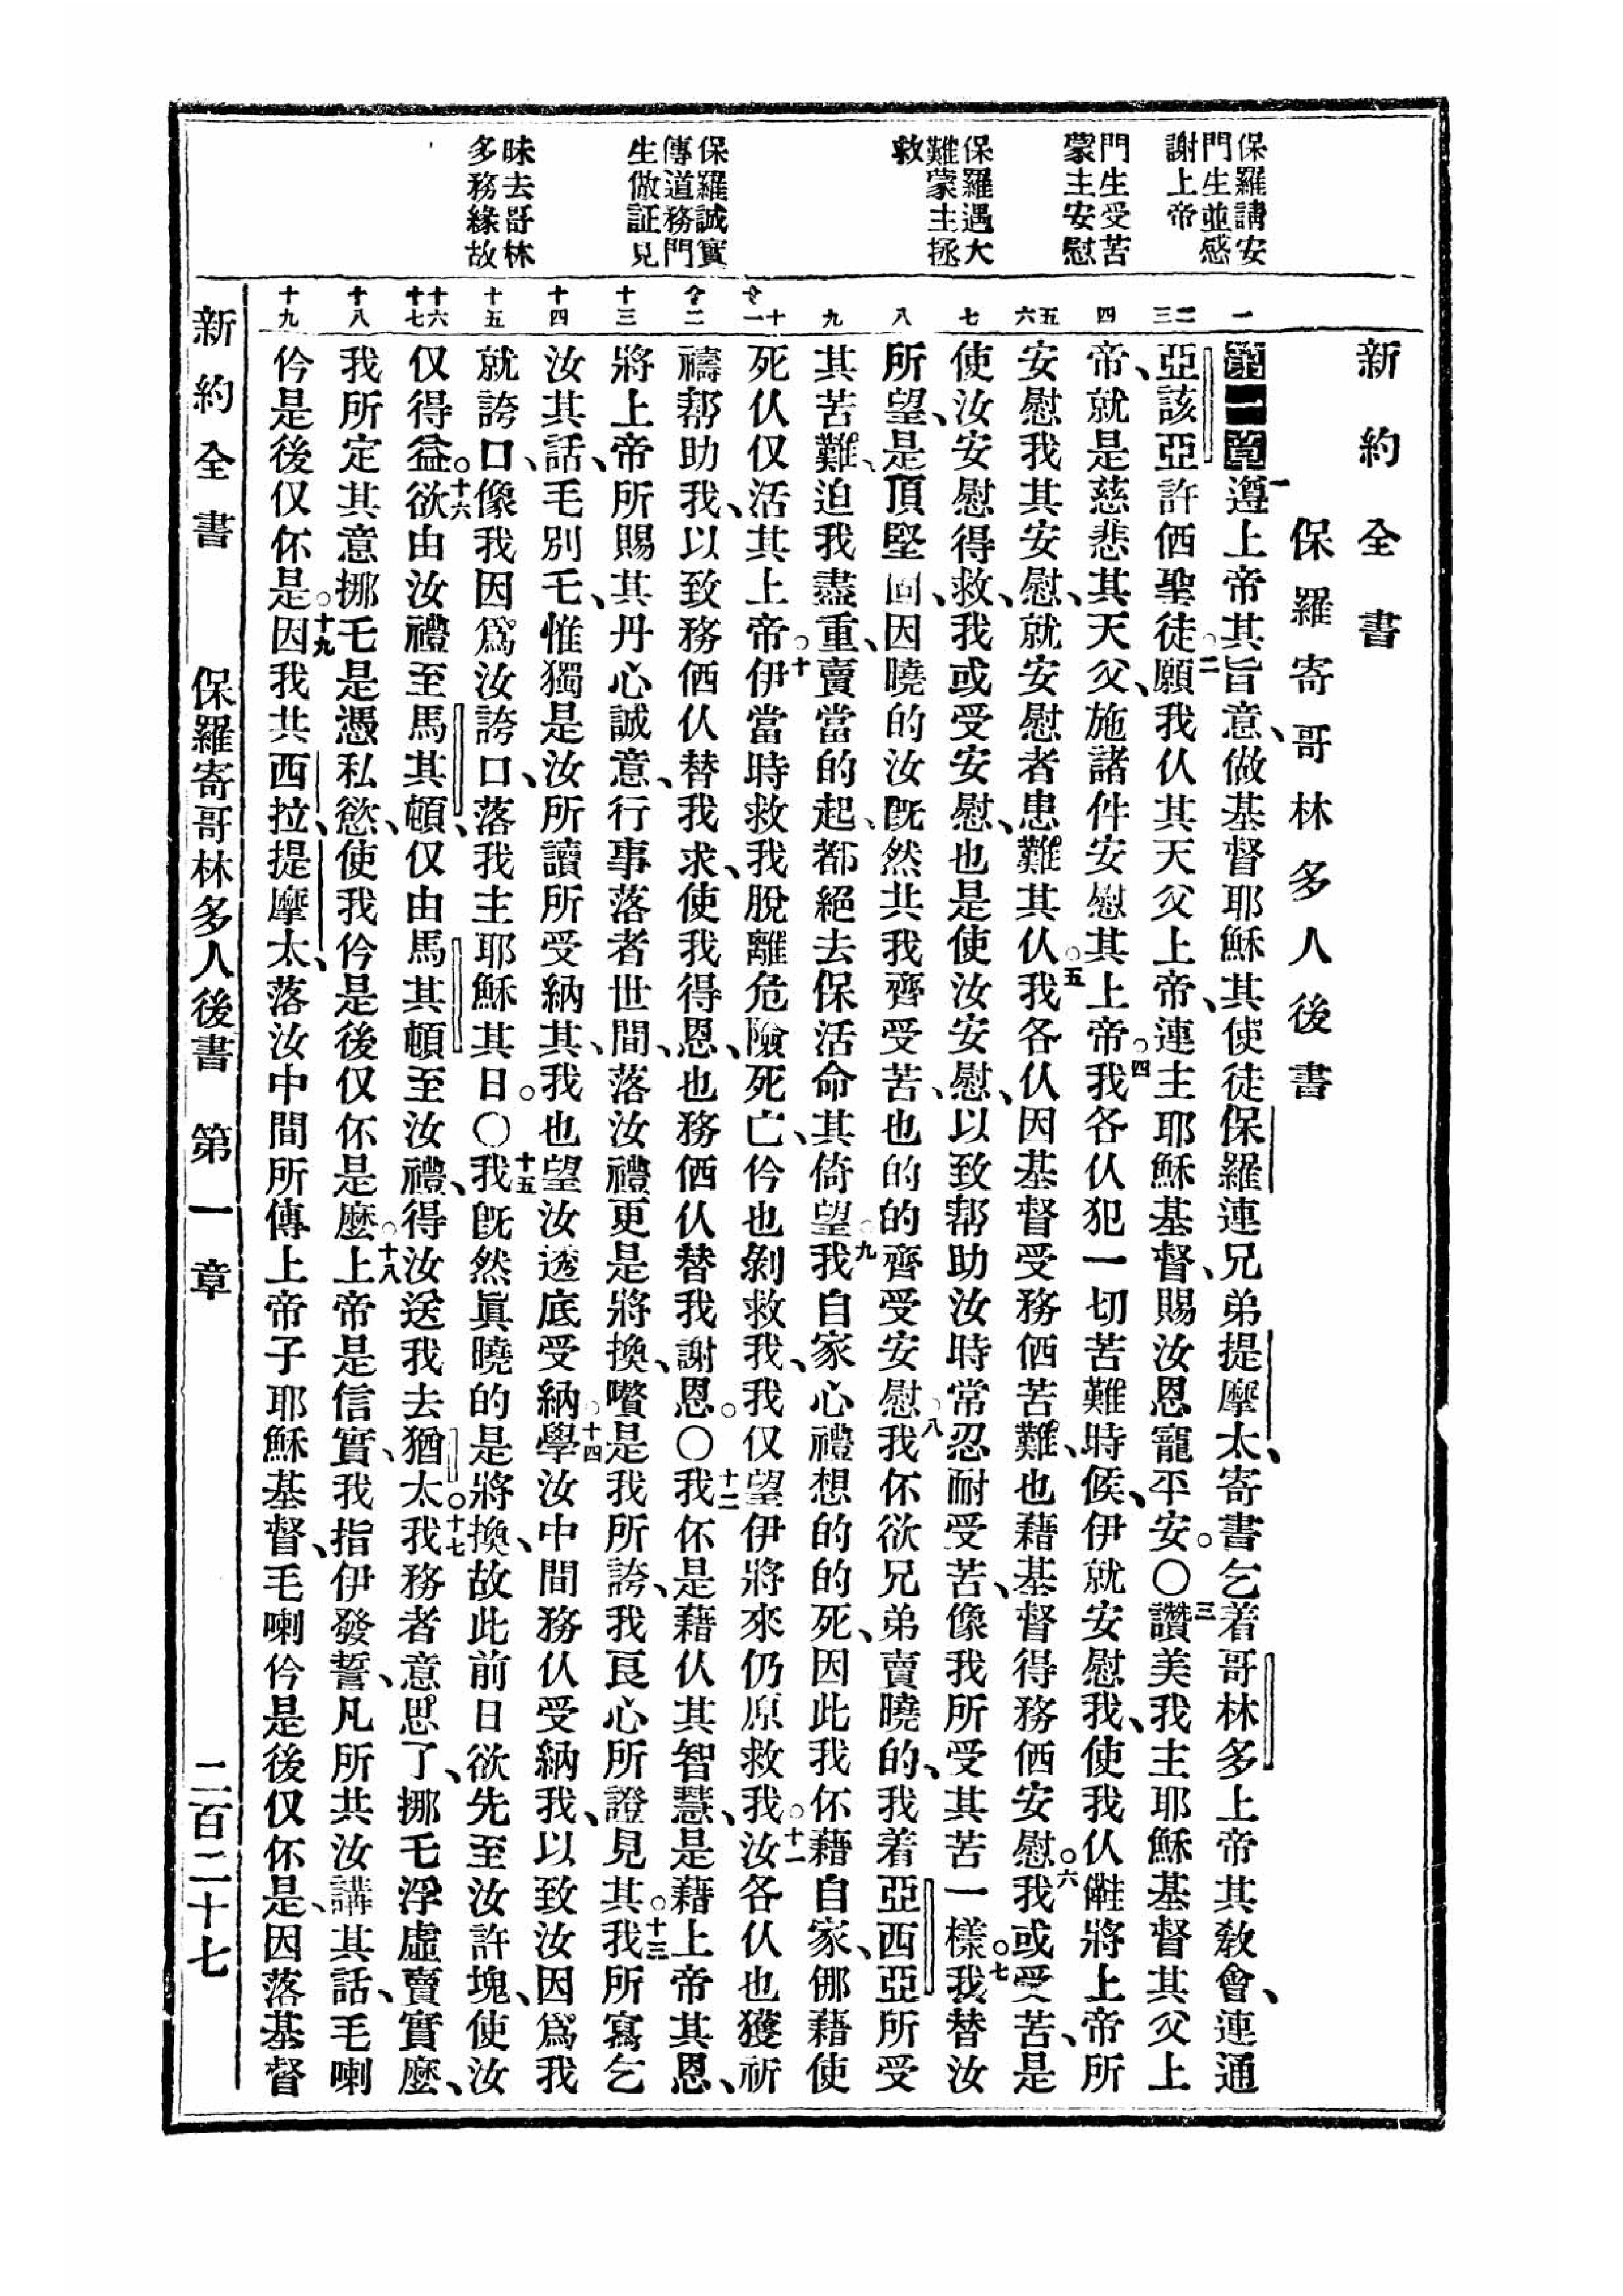 保羅請安
門生並感
謝上帝
門生受苦
蒙主安慰
保羅遇大
難蒙主拯
救
保羅誠實
傳道務門
生做証見
昧去哥林
多務緣故
一
二
三
四
五
六
七
八
九
十
十一
十二
十三
十四
十五
十六
十七
十八
十九
新約全書
保羅寄哥林多人後書
第一章一遵上帝其旨意、做基督耶穌其使徒保羅連兄弟提摩太、寄書乞着哥林多上帝其教會、連通
亞該亞許価聖徒。二願我仈其天父上帝、連主耶穌基督、賜汝恩寵平安。〇三讚美我主耶穌基督其父上
帝、就是慈悲其天父、施諸件安慰其上帝。四我各仈犯一切苦難時候、伊就安慰我、使我仈儺將上帝所
安慰我其安慰、就安慰者患難其仈。五我各仈因基督受務価苦難、也藉基督得務価安慰。六我或受苦、是
使汝安慰得救、我或受安慰、也是使汝安慰、以致幫助汝時常忍耐受苦、像我所受其苦一樣。七我替汝
所望、是頂堅固、因曉的汝既然共我齊受苦、也的的齊受安慰。八我伓欲兄弟賣曉的、我着亞西亞所受
其苦難、迫我盡重、賣當的起、都絕去保活命其倚望。九我自家心禮想的的死、因此我伓藉自家、倻藉使
死仈仅活其上帝。十伊當時救我脫離危險死亡、仱也剝救我、我仅望伊將來仍原救我。十一汝各仈也獲祈
禱幫助我、以致務価仈替我求、使我得恩、也務価仈替我謝恩。〇十二我伓是藉仈其智慧、是藉上帝其恩、
將上帝所賜其丹心誠意、行事落者世間、落汝禮更是將換、嚽是我所誇、我良心所證見其。十三我所寫乞
汝其話、毛別乇、惟獨是汝所讀所受納其、我也望汝透底受納。十四學汝中間務仈受納我、以致汝因爲我
就誇口、像我因爲汝誇口、落我主耶穌其日。〇十五我既然眞曉的是將換、故此前日欲先至汝許塊、使汝
仅得益。十六欲由汝禮至馬其頓、仅由馬其頓至汝禮、得汝送我去猶太。十七我務者意思了、挪乇浮虛賣實麼、
我所定其意挪乇是憑私慾、使我仱是後仅伓是麼。十八上帝是信實、我指伊發誓、凡所共汝講其話、毛喇
仱是後仅伓是。十九因我共西拉、提摩太、落汝中間所傳上帝子耶穌基督、毛喇仱是後仅伓是、因落基督
新約全書 保羅寄哥林多人後書 第一章 二百二十七